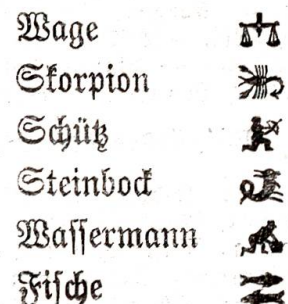 Wage
Skorpion
Schütz
Steinbock
Wassermann
Fische